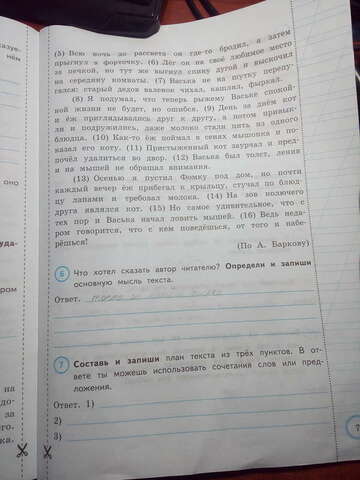 (5) Всю ночь до рассвета он где-то бродил, а затем
прыгнул в форточку. (6) Лёг он на своё любимое место
за печкой, но тут же выгнул спину дугой и выскочил
на середину комнаты. (7) Васька не на шутку перепу-
гался: старый дедов валенок чихал, кашлял, фыркал.
(8) Я подумал, что теперь рыжему Ваське спокой-
ной жизни не будет, но ошибся. (9) День за днём кот
и ёж приглядывались друг к другу, а потом привык-
ли и подружились, даже молоко стали пить из одного
блюдца. (10) Как-то ёж поймал в сенях мышонка и по-
казал его коту. (11) Пристыженный кот заурчал и пред-
почёл удалиться во двор. (12) Васька был толст, ленив
и на мышей не обращал внимания.
(13) Осенью я пустил Фомку под дом, но почти
каждый вечер ёж прибегал к крыльцу, стучал по блюд-
цу лапами и требовал молока. (14) На зов колючего
друга являлся кот. (15) Но самое удивительное, что с
тех пор и Васька начал ловить мышей. (16) Ведь неда-
ром говорится, что с кем поведёшься, от того и набе-
рёшься!
(По А. Баркову)
6 Что хотел сказать автор читателю? Определи и запиши
основную мысль текста.
Ответ.
7 Составь и запиши план текста из трёх пунктов. В от-
вете ты можешь использовать сочетания слов или пред-
ложения.
Ответ. 1)
2)
3)
казуе-
нём
оно
уда-
ром
на
до-
за
его.
ка.
7